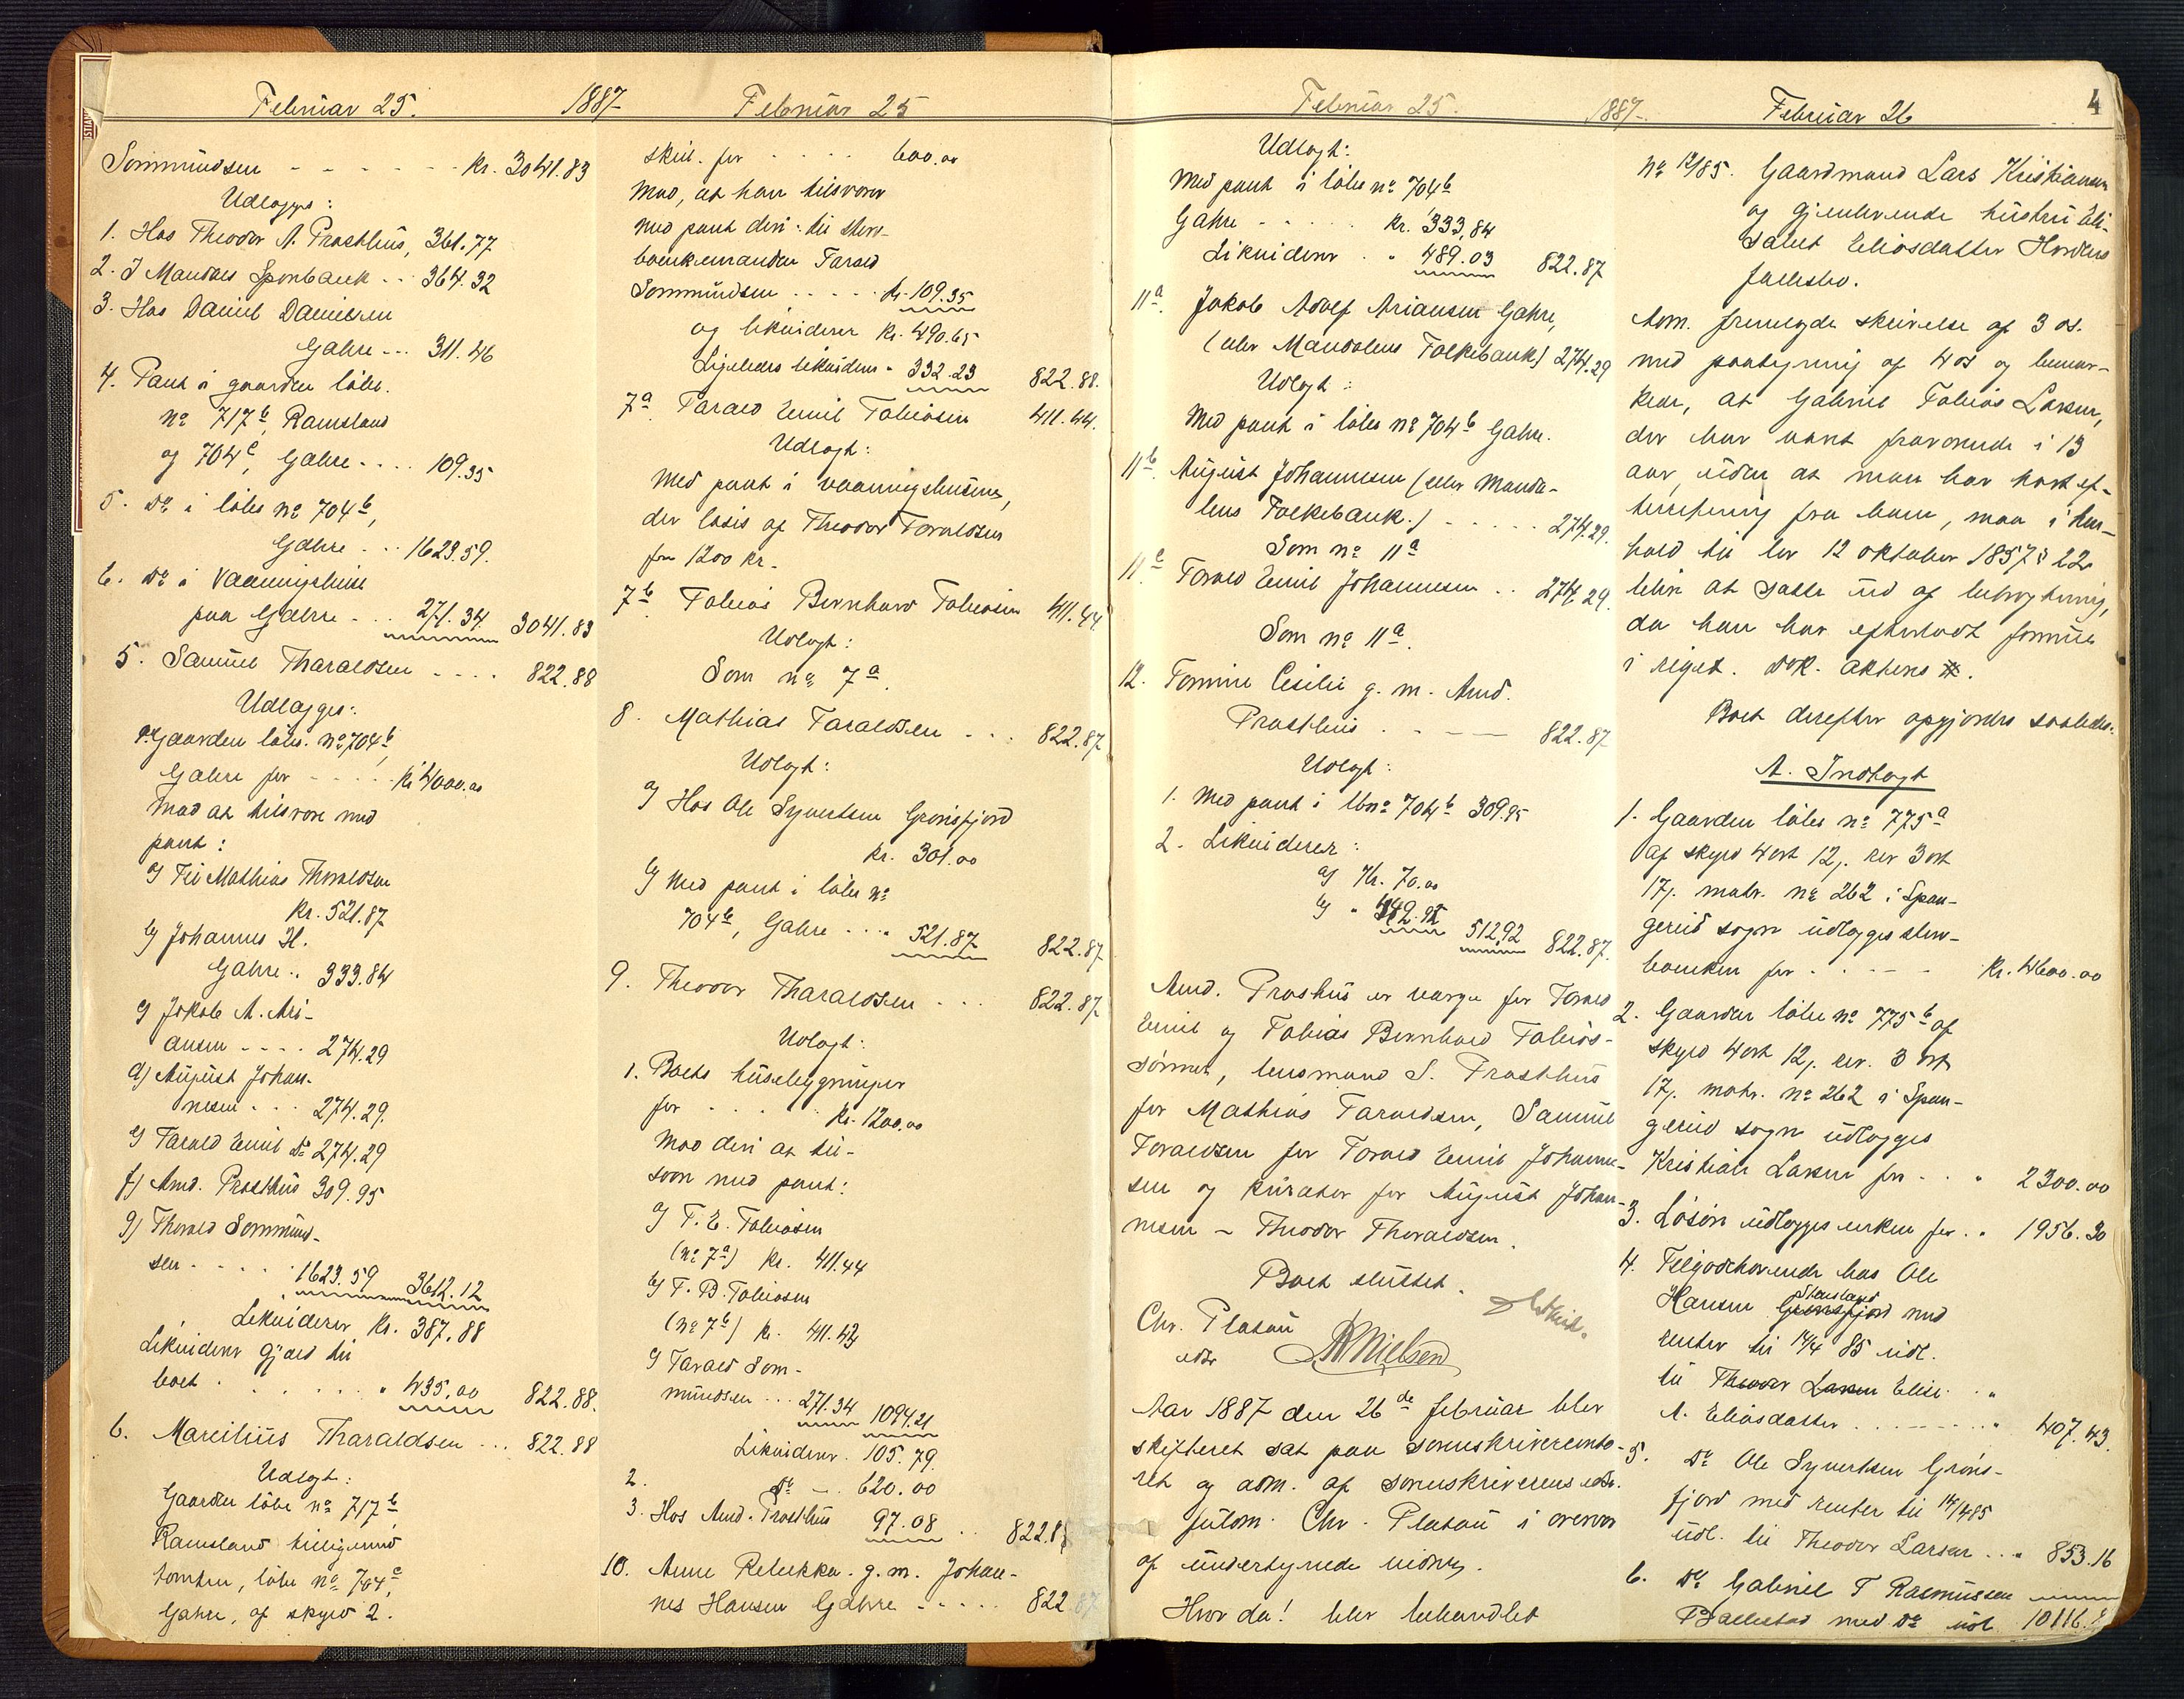 Februar 25. 1887
Sommundsen - - - - - - kr. 3041.83
Udlægges:
1. Hos Theodor A. Prasthus, 361.77
2. I Mandals Sparebank .. 364.32
3. Hos Daniel Danielsen
Gahre ... 311.46
4. Pant i gaarden løbe.
№ 717 b, Ramsland
og 704 c, Gahre .... 109.35
5. Do i løbe № 704 b,
Gahre ... 1623.59.
6. Do i Vaaningshuse
paa Gahre ... 271.34 3041.83
5. Samuel Tharaldsen .... 822.88
Udlægges:
Gaarden løbe. № 704 b,
Gahre for - - - - kr 4000.00
mod at tilsvare med
pant:
a) Til Mathias Tharaldsen
kr. 521.87
b) Johannes H.
Gahre .. 333.84
c) Jakob A. Ari-
ansen .... 274.29
d) August Johan-
nesen ... 274.29.
e) Tarald Emil Do 274.29
f) Amd. Prasthus 309.95
g) Tharald Sommund-
sen ..... 1623.59 3612.12
Likviderer kr. 387.88
Likviderer gjæld til
boet ....... " 435.00 822.88.
6. Marcilius Tharaldsen ... 822.88
Udlagt:
Gaarden løbe № 717 b
Ramsland tilligemed
tomten, løbe № 704 c,
Gahre, af skyld 2.
Februar 25
skil. for ..... 600.00
mod, at han tilsvarer
med pant deri: til sterv-
boenkemanden Tarald
Sommundsen ..... kr. 109.35
og likviderer kr. 490.65
Ligeledes likviderer " 332.23 822.88.
7 a Tarald Emil Tobiasen 411.44.
Udlagt:
Med pant i vaaningshusene,
der løses af Theodor Taraldsen
for 1200 kr.
7 b Tobias Bernhard Tobiasen 411.44
Udlagt:
Som № 7 a.
8. Mathias Taraldsen ... 822.87
Udlagt:
a) Hos Ole Syvertsen Grønsfjord
kr. 301.00
b) Med pant i løbe №
704 b, Gahre .... 521.87 822.87
9. Theodor Tharaldsen ... 822.87
Udlagt:
1. Boets husebygninger
for ..... kr. 1200.00
Mod deri at til-
svare med pant:
a) T. E. Tobiasen
(№ 7 a) kr. 411.44
b) T. B. Tobiasen
(№ 7 b) kr. 411.43
c) Tarald Som-
mundsen ... 271.34 1094.21
Likviderer. 105.79.
2. Do - . 620.00
3. Hos Amd. Prasthus 97.08 .. 822.87
10. Anne Rebekka g. m. Johan-
nes Hansen Gahre ..... 822.87
Februar 25. 1887.
Udlagt:
Med pant i løbe № 704 b
Gahre ..... kr. 333.84
Likviderer . " 489.03 822.87
11 a. Jakob Adolf Ariansen Gahre,
(eller Mandalens Folkebank) 274.29
Udlagt:
Med pant i løbe № 704 b Gahre.
11 b. August Johannesen (eller Manda-
lens Folkebank.) ..... 274.29.
Som № 11 a
11 c Tarald Emil Johannesen .. 274.29.
Som № 11 a.
12. Tomine Cesilie g. m. Amd.
Prasthus . - - - 822.87
Udlagt:
1. Med pant i lb № 704 b 309.95
2. Likviderer:
a) Kr. 70.00
b) " 442.92 512.92 822.87.
Amd. Prasthus er værge for Tarald
Emil og Tobias Bernhard Tobias-
sønner, lensmand S. Prasthus
for Mathias Taraldsen, Samuel
Taraldsen for Tarald Emil Johanne-
sen og kurator for August Johan-
nesen - Theodor Tharaldsen.
Boet sluttet.
Chr. Platou
edsv RNielsen
Aar 1887 den 26de februar blev
skifteret sat paa sorenskriverconto-
ret og adm. af sorenskriverens edsv.
fuldm. Chr. Platou i overvær
af undertegnede vidner.
Hvor da! blev behandlet
Februar 26 4
№ 12/85. Gaardmand Lars Kristiansen
og gjenlevende hustru Eli-
sabet Eliasdatter Hordnes
fællesbo.
Adm. fremlagde skrivelse af 3 ds.
med paategning af 4 ds og bemær-
kede, at Gabriel Tobias Larsen,
der har været fraværende i 13
aar uden at man har hørt ef-
terretning fra ham, maa i hen-
hold til lov 12 oktober 1857 § 22
blive at sætte ud af betragtning,
da han har efterladt formue
i riget. Dok. aktens #.
Boet derefter opgjordes saaledes:
A. Indtægt
1. Gaarden løbe № 775 a
af skyld 4 ort 12 j. rev 3 ort
17 j. matr. № 262 i Span-
gereid sogn udlægges sterv-
boenken for . . - - - kr. 4600.00
2. Gaarden løbe № 775 b af
skyld 4 ort 12 j. rev. 3 ort
17 j. matr. № 262 i Span-
gereid sogn udlægges
Kristian Larsen for . . " 2300.00
3. Løsøre udlægges enken for .. 1956.30
4. Tilgodehavende hos Ole
Hansen Grønsfjord Stensland med
renter til 14/4 85 udl.
til Theodor Larsen Elise . "
A. Eliasdatter ........ " 407.43.
5. Do Ole Syvertsen Grøns-
fjord med renter til 14/4 85
udl. til Theodor Larsen ... 853.16
6. Do Gabriel T Rasmussen
Ballestad med Do udl. 10116.